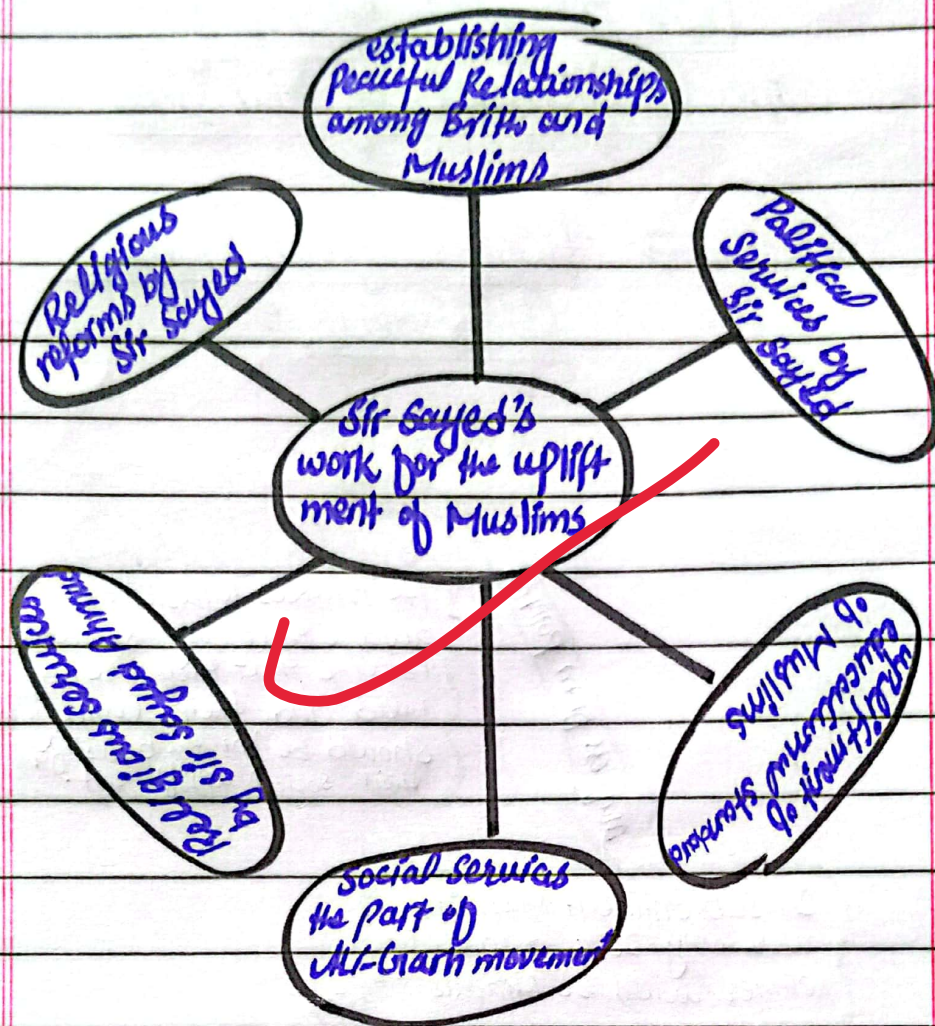 establishing
Peaceful Relationships
among Britts and
Muslims
Religious
reforms by
Sir Sayed
Political
Services by
Sir Sayed
Sir Sayed's
work for the uplift
ment of Muslims
Religious Services
by Sir Sayed Ahmad
upliftment of
educational standard
of Muslims
Social Services
the part of
Ali-Garh movement